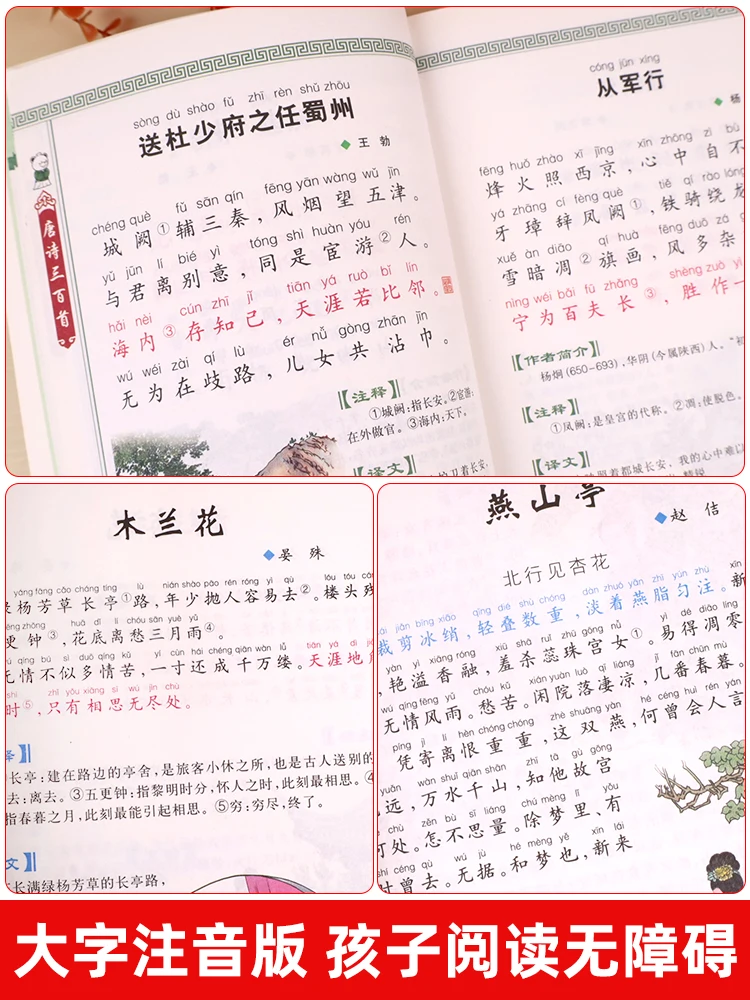 唐诗三百首
sòng dù shào fǔ zhī rèn shǔ zhōu
送杜少府之任蜀州
◆王 勃
chéng què fǔ sān qín fēng yān wàng wǔ jīn
城阙①辅三秦,风烟望五津。
yǔ jūn lí bié yì tóng shì huàn yóu rén
与君离别意,同是宦游②人。
hǎi nèi cún zhī jǐ tiān yá ruò bǐ lín
海内③存知己,天涯若比邻。
wú wéi zài qí lù ér nǚ gòng zhān jīn
无为在歧路,儿女共沾巾。
【注释】
①城阙:指长安。②宦游:
在外做官。③海内:天下。
【译文】
cóng jūn xíng
从军行
◆杨
fēng huǒ zhào xī jīng xīn zhōng zì bù
烽火照西京,心中自不
yá zhāng cí fèng què tiě qí rào lóng
牙璋辞凤阙①,铁骑绕龙
xuě àn diāo qí huà fēng duō zá gǔ
雪暗凋②旗画,风多杂
nìng wéi bǎi fū zhǎng shèng zuò yī
宁为百夫长③,胜作一
【作者简介】
杨炯(650-693),华阴(今属陕西)人。“初
【注释】
①凤阙:是皇宫的代称。②凋:使脱色。
【译文】
照着都城长安,我的心中难以
木兰花
◆晏 殊
yáng fāng cǎo cháng tíng lù nián shào pāo rén róng yì qù lóu tóu cán
杨芳草长亭①路,年少抛人容易去②。楼头残
huā dǐ lí chóu sān yuè yǔ
更钟③,花底离愁三月雨④。
wú qíng bù sì duō qíng kǔ yí cùn hái chéng qiān wàn lǚ tiān yá dì jiǎo
无情不似多情苦,一寸还成千万缕。天涯地角
shí zhǐ yǒu xiāng sī wú jìn chù
时⑤,只有相思无尽处。
释】
长亭:建在路边的亭舍,是旅客小休之所,也是古人送别的
去:离去。③五更钟:指黎明时分,怀人之时,此刻最相思。④
指春暮之月,此刻最能引起相思。⑤穷:穷尽,终了。
文】
长满绿杨芳草的长亭路,
燕山亭
◆赵 佶
北行见杏花
cái jiǎn bīng xiāo qīng dié shù chóng dàn zhuó yān zhī yún zhù xīn
裁剪冰绡,轻叠数重,淡着燕脂匀注。新
yàn yì xiāng róng xiū shā ruǐ zhū gōng nǚ yì dé diāo líng
,艳溢香融,羞杀蕊珠宫女①。易得凋零
wú qíng fēng yǔ chóu kǔ xián yuàn luò qī liáng jǐ fān chūn mù
无情风雨。愁苦。闲院落凄凉,几番春暮。
píng jì lí hèn chóng chóng zhè shuāng yàn hé céng huì rén yán
凭寄离恨重重,这双燕,何曾会人言
yuǎn wàn shuǐ qiān shān zhī tā gù gōng
远,万水千山,知他故宫
chù zěn bù sī liáng chú mèng lǐ yǒu
何处。怎不思量。除梦里、有
shí céng qù wú jù hé mèng yě xīn lái
时曾去。无据。和梦也,新来
大字注音版 孩子阅读无障碍